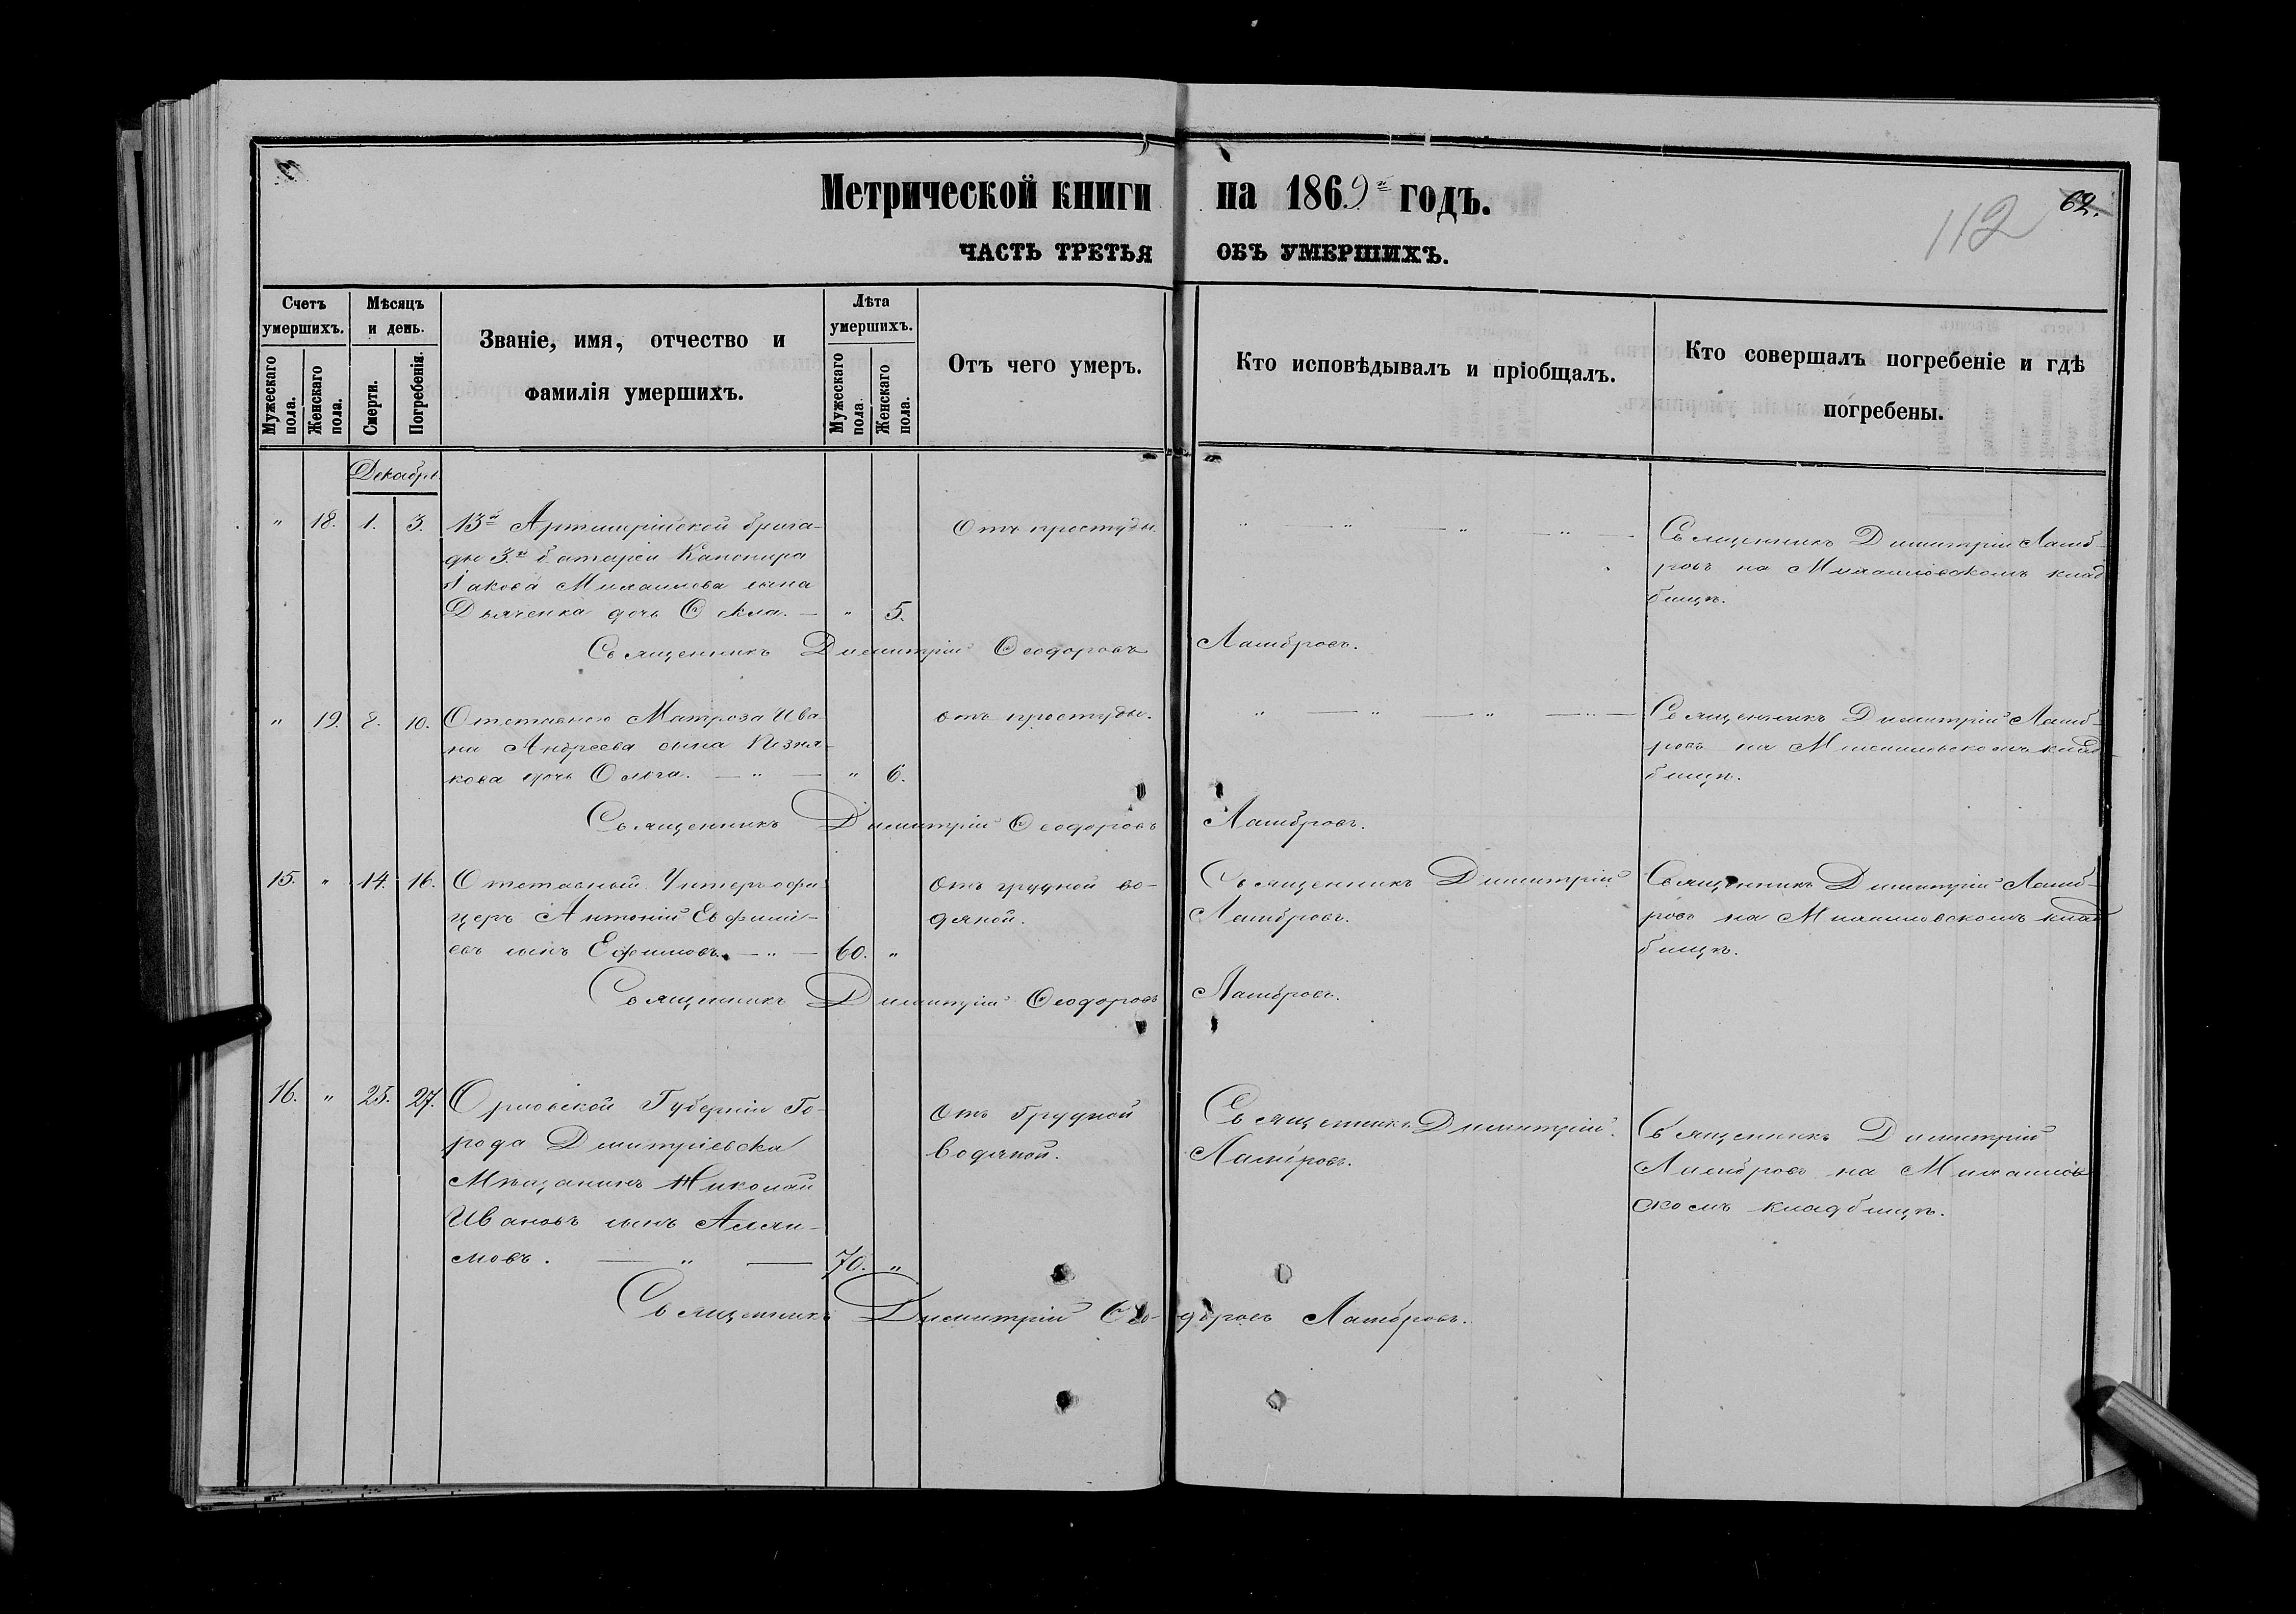 Метрической книги на 1869й годъ.
112 62.
ЧАСТЬ ТРЕТЬЯ ОБЪ УМЕРШИХЪ.
Счетъ умершихъ.
Мужескаго пола.
Женскаго пола.
Мѣсяцъ и день.
Смерти.
Погребенія.
Званіе, имя, отчество и
фамилія умершихъ.
Лѣта умершихъ.
Мужескаго пола.
Женскаго пола.
Отъ чего умеръ.
Кто исповѣдывалъ и пріобщалъ.
Кто совершалъ погребеніе и гдѣ
погребены.
Декабрь
" 18. 1. 3. 13й Артиллрійской брига-
ды 3й батареи Канонира
Іакова Михаилова сына
Дьяченка дочь Ѳекла. — " 5.
Отъ простуды.
" — " — " — " —
Священникъ Димитрій Ламб-
ровъ на Михаиловскомъ клад
бищѣ.
Священникъ Димитрій Ѳеодоровъ Ламбровъ.
" 19. 8. 10. Отставнаго Матроза Ива
на Андреева сына Позня-
кова дочь Олга. — " — " 6.
отъ простуды.
" — " — " — " —
Священникъ Димитрій Ламб-
ровъ на Михаиловскомъ клад
бищѣ.
Священникъ Димитрій Ѳеодоровъ Ламбровъ.
15. " 14. 16. Отставный Унтеръ-офи-
церъ Антоній Евфимі-
евъ сынъ Ефимовъ. — " — 60. "
Отъ грудной во-
дяной.
Священникъ Димитрій
Ламбровъ.
Священникъ Димитрій Ламб-
ровъ на Михаиловскомъ клад
бищѣ.
Священникъ Димитрій Ѳеодоровъ Ламбровъ.
16. " 25. 27. Орловской Губерніи Го-
рода Дмитріевска
Мѣщанинъ Николай
Ивановъ сынъ
мовъ. — " — 70. "
Отъ Грудной
водяной.
Священникъ Димитрій
Ламбровъ.
Священникъ Димитрій
Ламбровъ на Михаилов
скомъ кладбищѣ.
Священникъ Димитрій Ѳео-доровъ Ламбровъ.